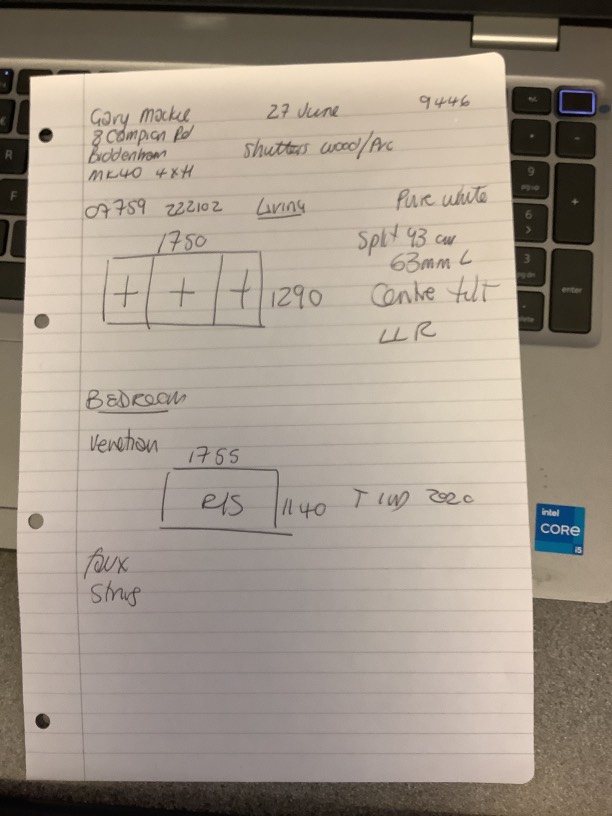 Gary Mackie 27 June 9446
8 Campion Rd
Biddenham Shutters wood/Pvc
MK40 4XH
07759 222102 Living Pure white
1750 Split 93 cm
63mm L
+ + + 1290 Centre tilt
LLR
BEDROOM
Venetian
1755
R/S 1140 T 2020
faux
Strings
intel
CORE
i5